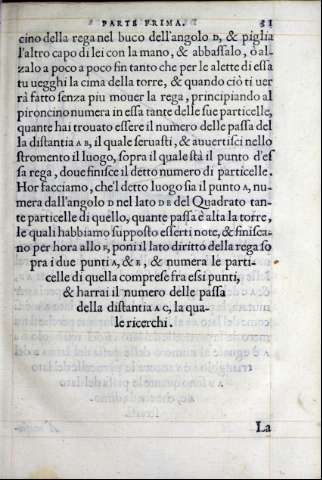 PARTE PRIMA. 51
cino della rega nel buco dell'angolo D, & piglia
l'altro capo di lei con la mano, & abbassalo, o al-
zalo a poco a poco fin tanto che per le alette di essa
tu uegghi la cima della torre, & quando ciò ti uer
rà fatto senza piu mouer la rega, principiando al
pironcino numera in essa tante delle sue particelle,
quante hai trouato essere il numero delle passa del
la distantia A B, il quale seruasti, & auuertisci nello
stromento il luogo, sopra il quale stà il punto d'es
sa rega, doue finisce il detto numero di particelle.
Hor facciamo, che'l detto luogo sia il punto A, nu-
mera dall'angolo D nel lato D E del Quadrato tan-
te particelle di quello, quante passa è alta la torre,
le quali habbiamo supposto esserti note, & finisca-
no per hora allo E, poni il lato diritto della rega so
pra i due punti A, & E, & numera le parti-
celle di quella comprese fra essi punti,
& harrai il numero delle passa
della distantia A C, la qua-
le ricerchi.
La